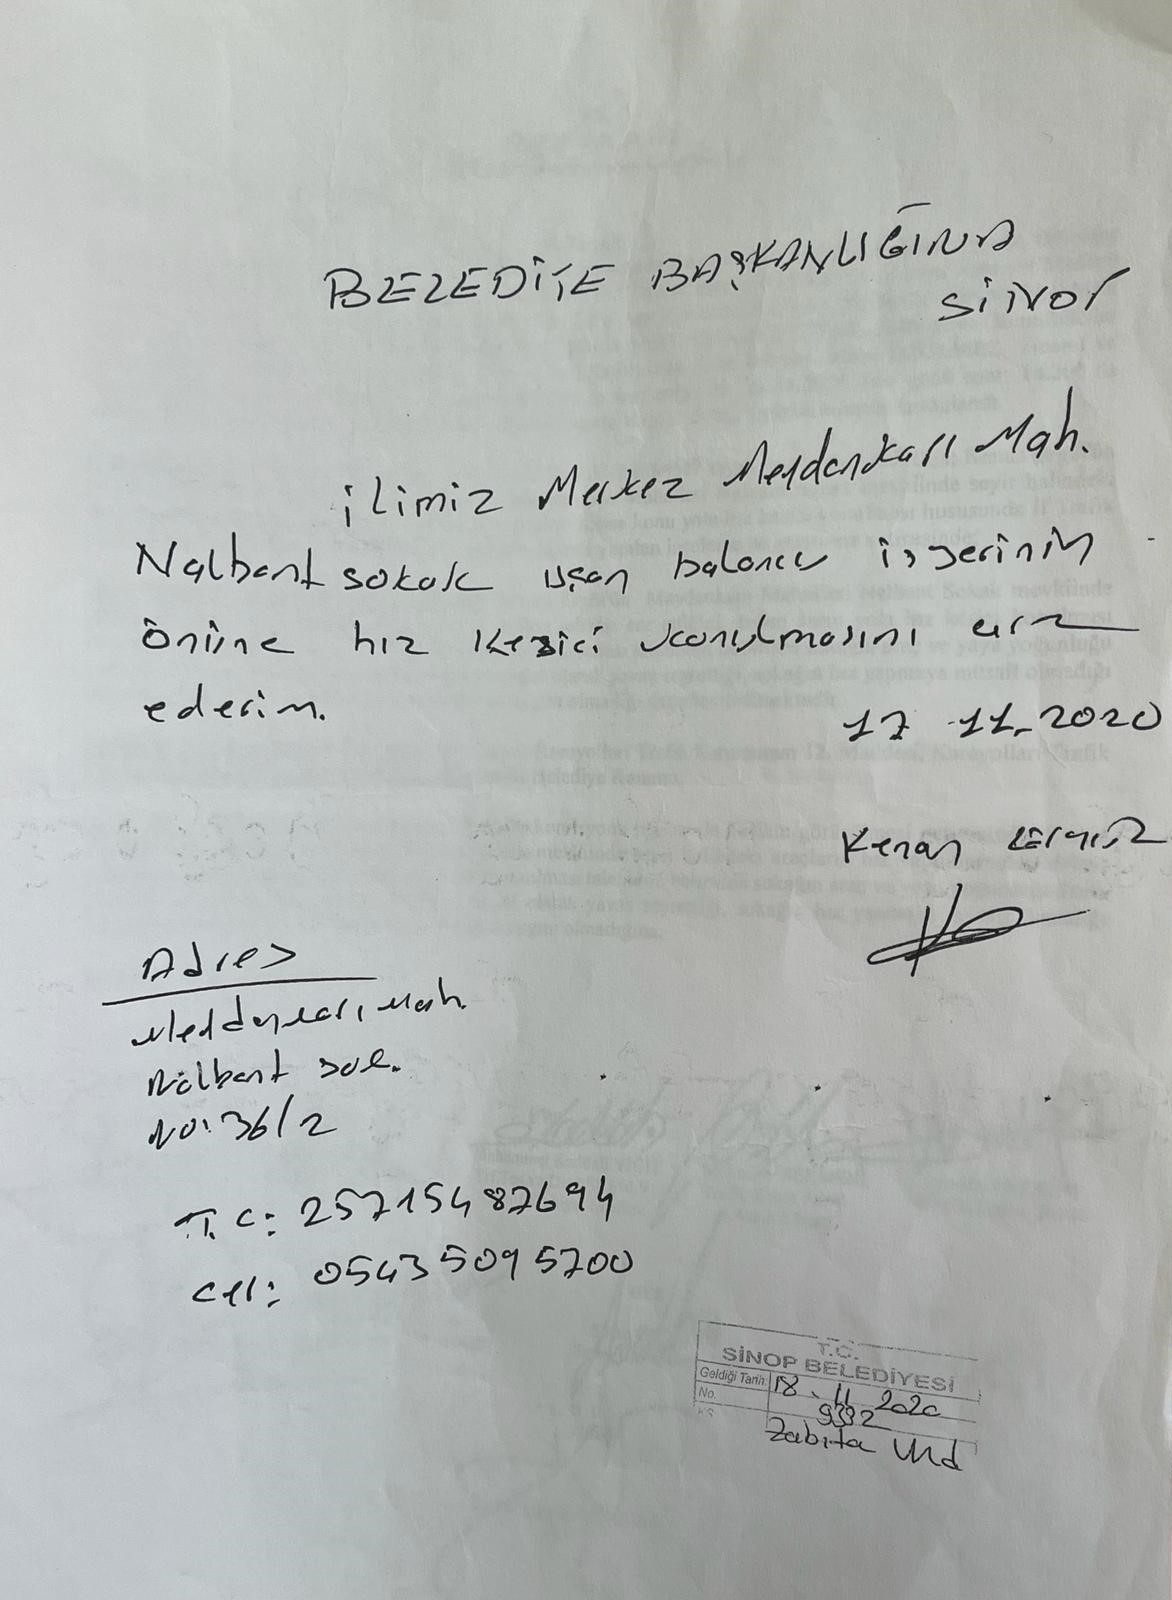 BELEDİYE BAŞKANLIĞINA
SİNOP
İLİMİZ Merkez Meydankapı Mah.
Nalbant sokak uçan baloncu işyerinin
önüne hız kesici konulmasını arz
ederim.
17 11.2020
Kenan
Adres
Meydankapı Mah.
Nalbant sok.
NO: 36/2
T.C: 25715487694
cel: 05435095700
T.C.
SİNOP BELEDİYESİ
Geldiği Tarih: 18.11.2020
No. 9392
Zabıta Md